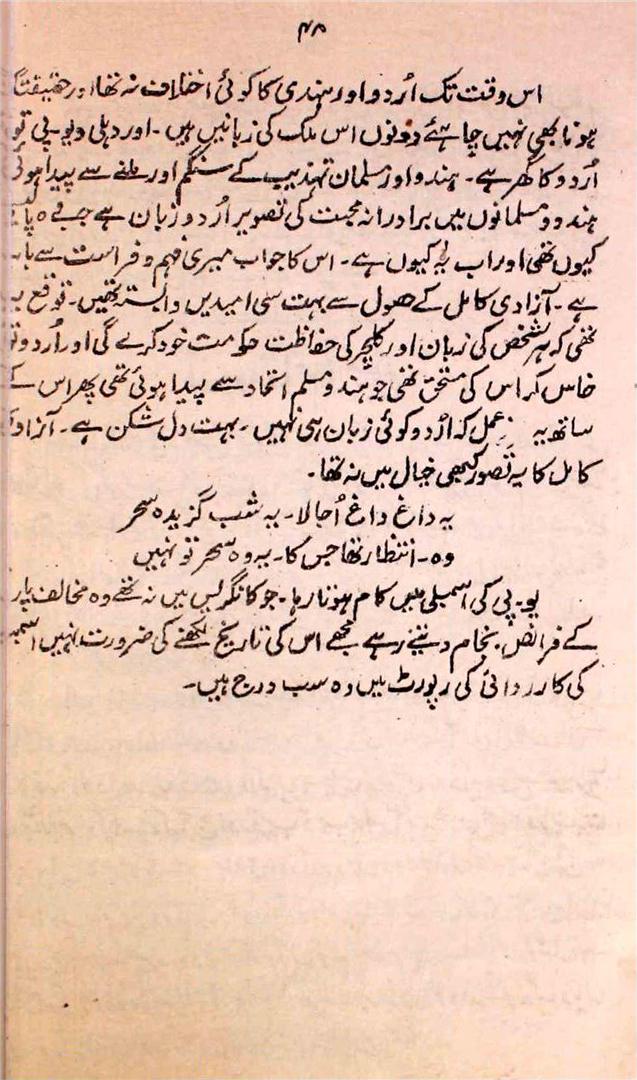 ۴۸
اس وقت تک اُردو اور ہندی کا کوئی اختلاف نہ تھا اور حقیقتاً
ہونا بھی نہیں چاہئے دونوں اس ملک کی زبانیں ہیں ۔ اور دہلی و یو۔پی تو
اُردو کا گھر ہے ۔ ہندو اور مسلمان تہذیب کے سنگم اور ملنے سے پیدا ہوئی
ہندو و مسلمانوں میں برادرانہ محبت کی تصویر اُردو زبان ہے
کیوں تھی اور اب یہ کیوں ہے ۔ اس کا جواب میری فہم و فراست سے
ہے ۔ آزادی کامل کے حصول سے بہت سی امیدیں وابستہ تھیں ۔ توقع یہ
تھی کہ ہر شخص کی زبان اور کلچر کی حفاظت حکومت خود کرے گی اور اُردو تو
خاص کر اس کی مستحق تھی جو ہندو مسلم اتحاد سے پیدا ہوئی تھی پھر اس کے
ساتھ یہ عمل کہ اُردو کوئی زبان ہی نہیں ۔ بہت دل شکن ہے ۔
کامل کا یہ تصور کبھی خیال میں نہ تھا ۔
یہ داغ داغ اُجالا ۔ یہ شب گزیدہ سحر
وہ ۔ انتظار تھا جس کا ۔ یہ وہ سحر تو نہیں
یو ۔ پی کی اسمبلی میں کام ہوتا رہا ۔ جو کانگرلیس میں نہ تھے وہ مخالف پار
کے فرائض انجام دیتے رہے مجھے اس کی تاریخ لکھنے کی ضرورت نہیں
کی کارروائی کی رپورٹ میں وہ سب درج ہیں ۔